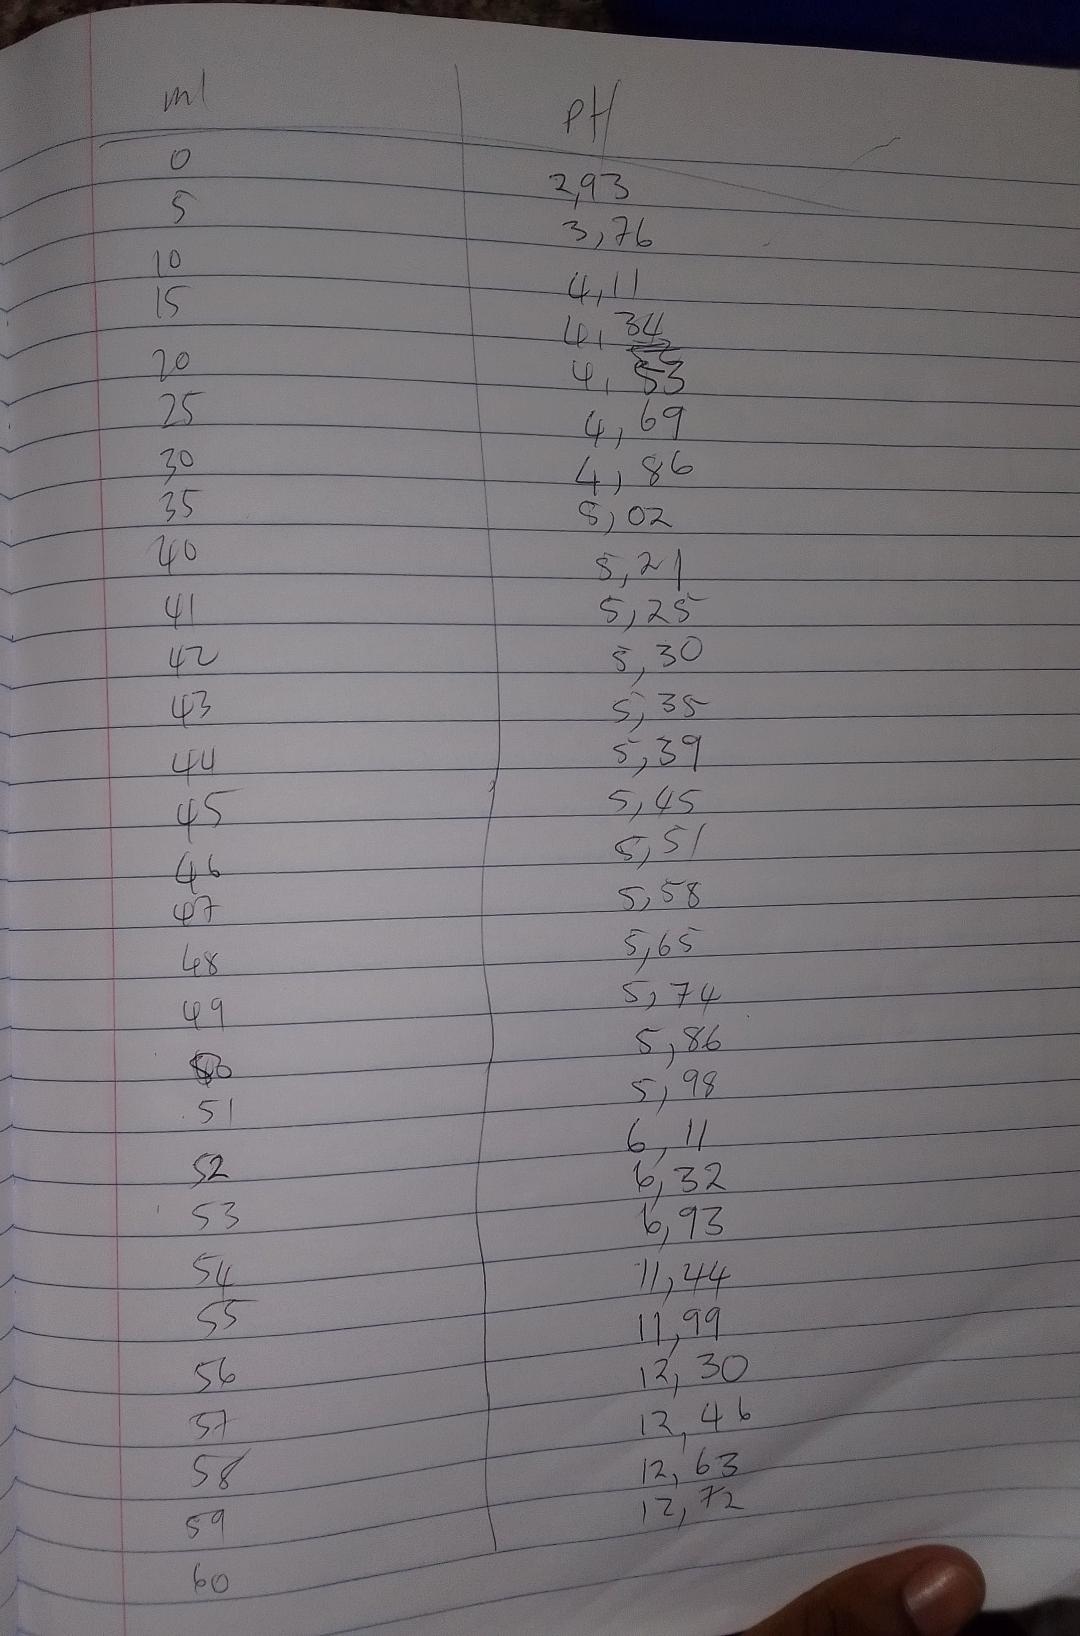 ml pH
0 2,93
5 3,76
10 4,11
15 4,34
20 4,53
25 4,69
30 4,86
35 5,02
40 5,21
41 5,25
42 5,30
43 5,35
44 5,39
45 5,45
46 5,51
47 5,58
48 5,65
49 5,74
50 5,86
51 5,98
52 6,11
53 6,32
54 6,93
55 11,44
56 11,99
57 12,30
58 12,46
59 12,63
60 12,72